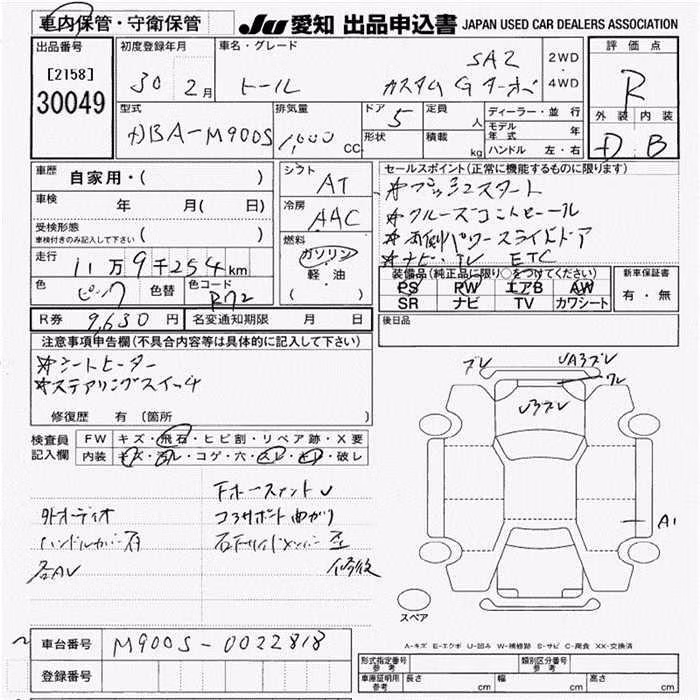 車内保管・守衛保管
JU 愛知 出品申込書 JAPAN USED CAR DEALERS ASSOCIATION
出品番号
[2158]
30049
初度登録年月
30 2月
車名・グレード
トール カスタムGターボ SA2
2WD
4WD
評価点
R
外装 内装
D B
型式
DBA-M900S
排気量
1,000 CC
ドア 5
定員 人
形状
積載 kg
ディーラー・並行
モデル年式 年
ハンドル 左・右
車歴
自家用・( )
車検 年 月( 日)
受検形態
車検付きのみ記入して下さい ( )
走行
11万9千254km
色 ピンク 色替 色コード R72
R券 9,630円 名変通知期限 月 日
シフト
AT
冷房
AAC
燃料
ガソリン
軽油
( )
セールスポイント(正常に機能するものに限ります)
*プッシュスタート
*クルーズコントロール
*両側パワースライドドア
*ナビ・TV ETC
装備品(純正品に限り○をつけてください)
PS PW エアB AW
SR ナビ TV カワシート
新車保証書
有・無
後日品
注意事項申告欄(不具合内容等は具体的に記入して下さい)
*シートヒーター
*ステアリングスイッチ
修復歴 有 〔箇所
検査員記入欄
FW キズ・飛石・ヒビ割・リペア跡・X要
内装 キズ・汚レ・コゲ・穴・スレ・キレ・破レ
外オーディオ
ハンドルカバー有
各AV
FホースメントU
コアサポート曲がり
石下サイドメンバー歪
修復
ズレ
UA3ズレ
ワレ
U3ズレ
A1
スペア
A-キズ E-エクボ U-凹み W-補修跡 S-サビ C-腐食 XX-交換済
車台番号 M900S-0022818
登録番号
形式指定番号 参考
類別区分番号 参考
車庫証明用 参考 長さ cm 幅 cm 高さ cm